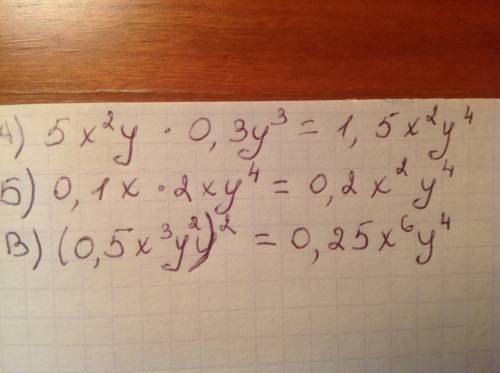 А) 5x²y · 0,3y³ = 1,5x²y⁴
Б) 0,1x · 2xy⁴ = 0,2x²y⁴
В) (0,5x³y²)² = 0,25x⁶y⁴